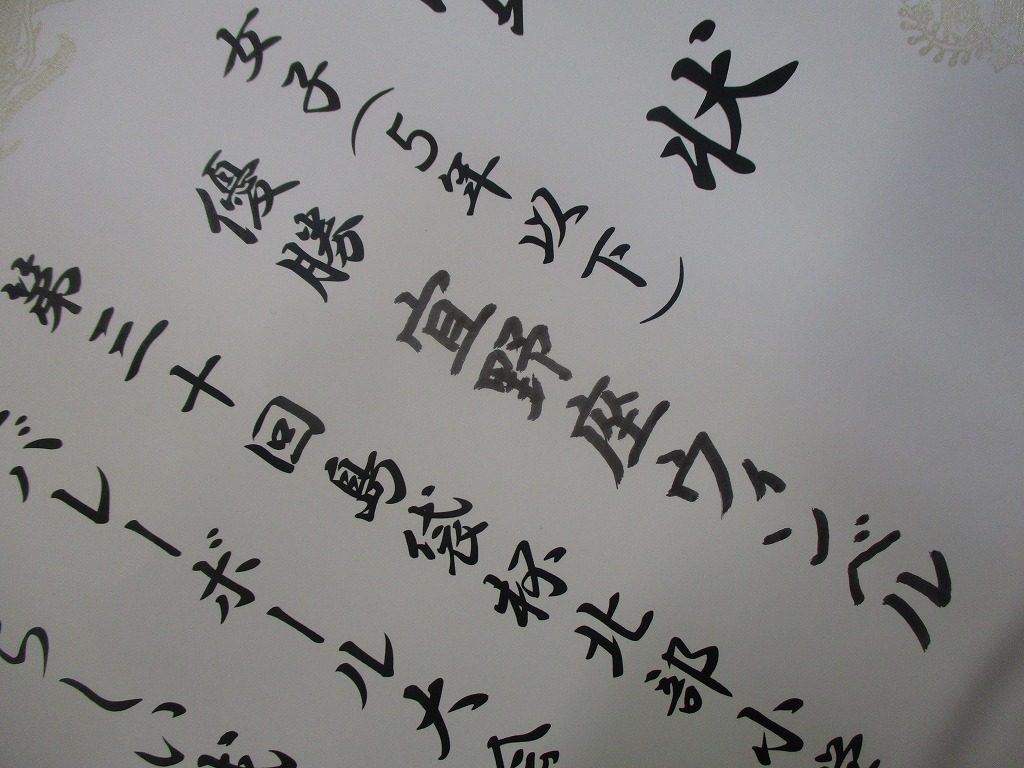 状
女子(5年以下)
優勝
宜野座ヴィンベル
第三十回島袋杯北部小学
バレーボール大会